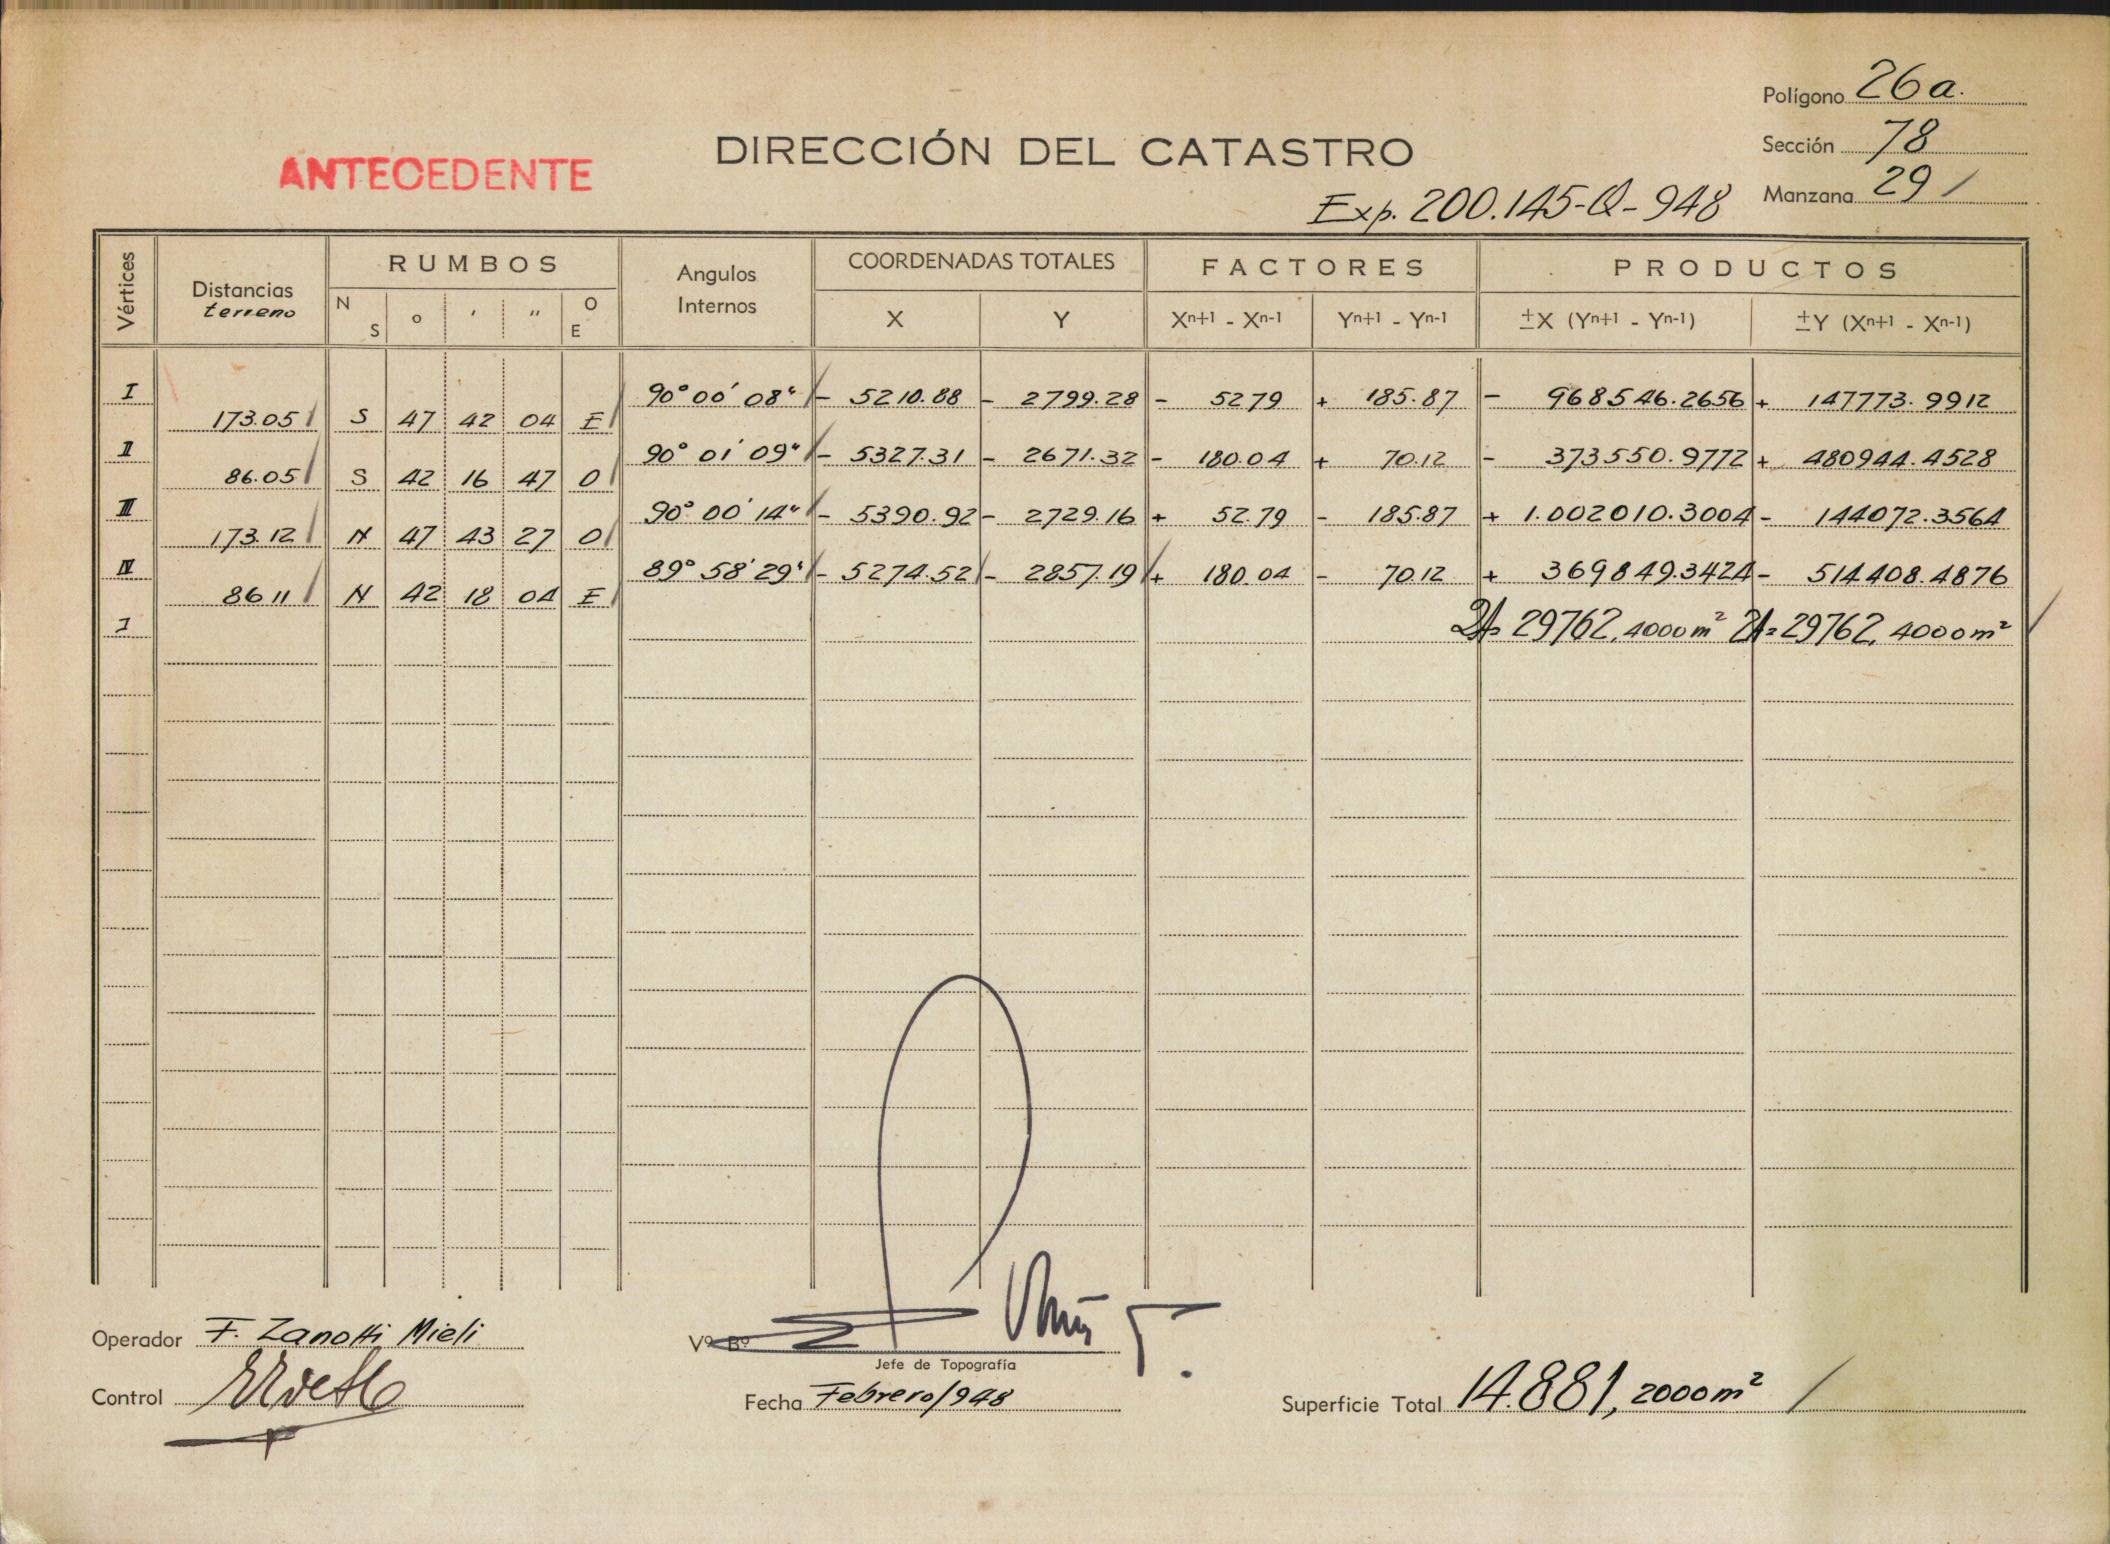 Polígono 26a.
ANTECEDENTE
DIRECCIÓN DEL CATASTRO
Sección 78
Exp. 200.145-Q-948
Manzana 29 /
Vértices
Distancias
terreno
RUMBOS
N S o ' " O E
Angulos
Internos
COORDENADAS TOTALES
X Y
FACTORES
Xn+1 - Xn-1 Yn+1 - Yn-1
PRODUCTOS
±X (Yn+1 - Yn-1) ±Y (Xn+1 - Xn-1)
I 90° 00' 08" - 5210.88 - 2799.28 - 52.79 + 185.87 - 968546.2656 + 147773.9912
173.05 S 47 42 04 E
II 90° 01' 09" - 5327.31 - 2671.32 - 180.04 + 70.12 - 373550.9772 + 480944.4528
86.05 S 42 16 47 O
III 90° 00' 14" - 5390.92 - 2729.16 + 52.79 - 185.87 + 1.002010.3004 - 144072.3564
173.12 N 47 43 27 O
IV 89° 58' 29" - 5274.52 - 2857.19 + 180.04 - 70.12 + 369849.3424 - 514408.4876
86.11 N 42 18 04 E
I 2A= 29762,4000m² 2A= 29762,4000m²
Operador F. Zanotti Mieli
Vº Bº
Jefe de Topografía
Control
Fecha Febrero/948
Superficie Total 14.881,2000m² /